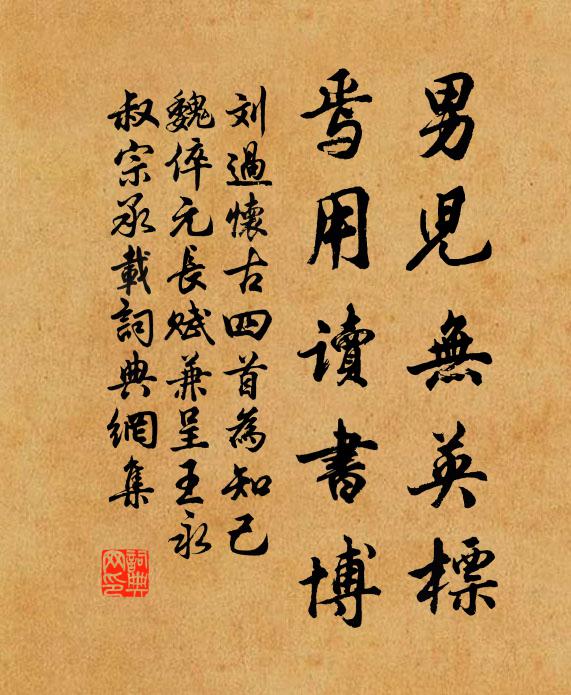 男児無英標
焉用讀書博
刘過懷古四首為知己
魏倅元長賦兼呈王永
叔宗丞載詞典網集
詞典
网印